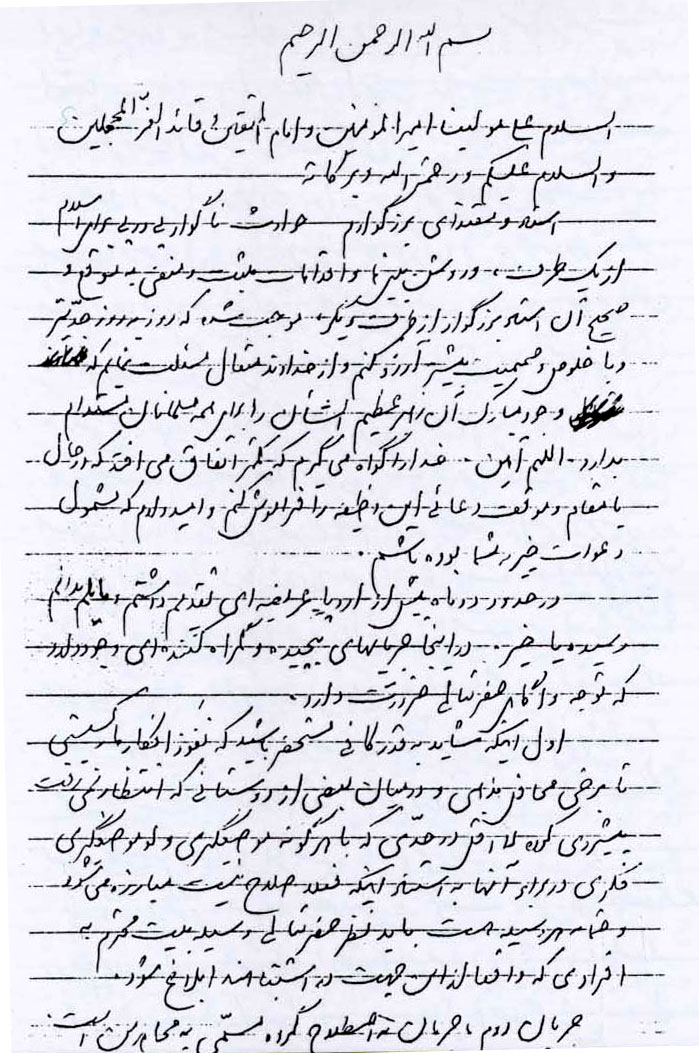 بسم الله الرحمن الرحیم
السلام علی مولینا امیرالمؤمنین و امام المتقین و قائد الغر المحجلین
و السلام علیکم و رحمة الله و برکاته
استاد و مقتدای بزرگوارم حوادث ناگوار پی در پی برای اسلام
از یک طرف، و روشن بینی‌ها و اقدامات مثبت و منفی به موقع و
صحیح آن استاد بزرگوار از طرف دیگر، موجب شده که روز بروز جدی‌تر
و با خلوص و صمیمیت بیشتر آرزو کنم و از خداوند متعال مسئلت نمایم که
وجود مبارک آن رهبر عظیم الشأن را برای همه مسلمانان مستدام
بدارد. اللهم آمین. خدا را گواه می‌گیرم که کمتر اتفاق می‌افتد که در حال
یا مقام و موقف دعائی این وظیفه را فراموش کنم و امیدوارم که مشمول
دعوات خیریه شما بوده باشم.
در حدود دو ماه پیش از اروپا عریضه‌ای تقدیم داشتم و مایلم بدانم
رسیده یا خیر. در اینجا جریانهای پیچیده و گمراه کننده‌ای وجود دارد
که توجه و آگاهی حضرتعالی ضرورت دارد.
اول اینکه شاید به قدر کافی مستحضر باشید که نفوذ افکار مارکسیستی
تا برخی محافل مذهبی و در میان بعضی از دوستانی که انتظار نمی‌رفت
پیشروی کرده لااقل در حدی که با هرگونه موضعگیری و لو موضعگیری
فکری در برابر آنها به استناد اینکه فعلا صلاح نیست مبارزه می‌شود
و حتما به هر وسیله هست باید نظر حضرتعالی وسیله بیت محترم به
افرادی که واقعا از این جهت در اشتباهند ابلاغ شود.
جریان دوم جریان به اصطلاح گروه مسمی به مجاهدین است